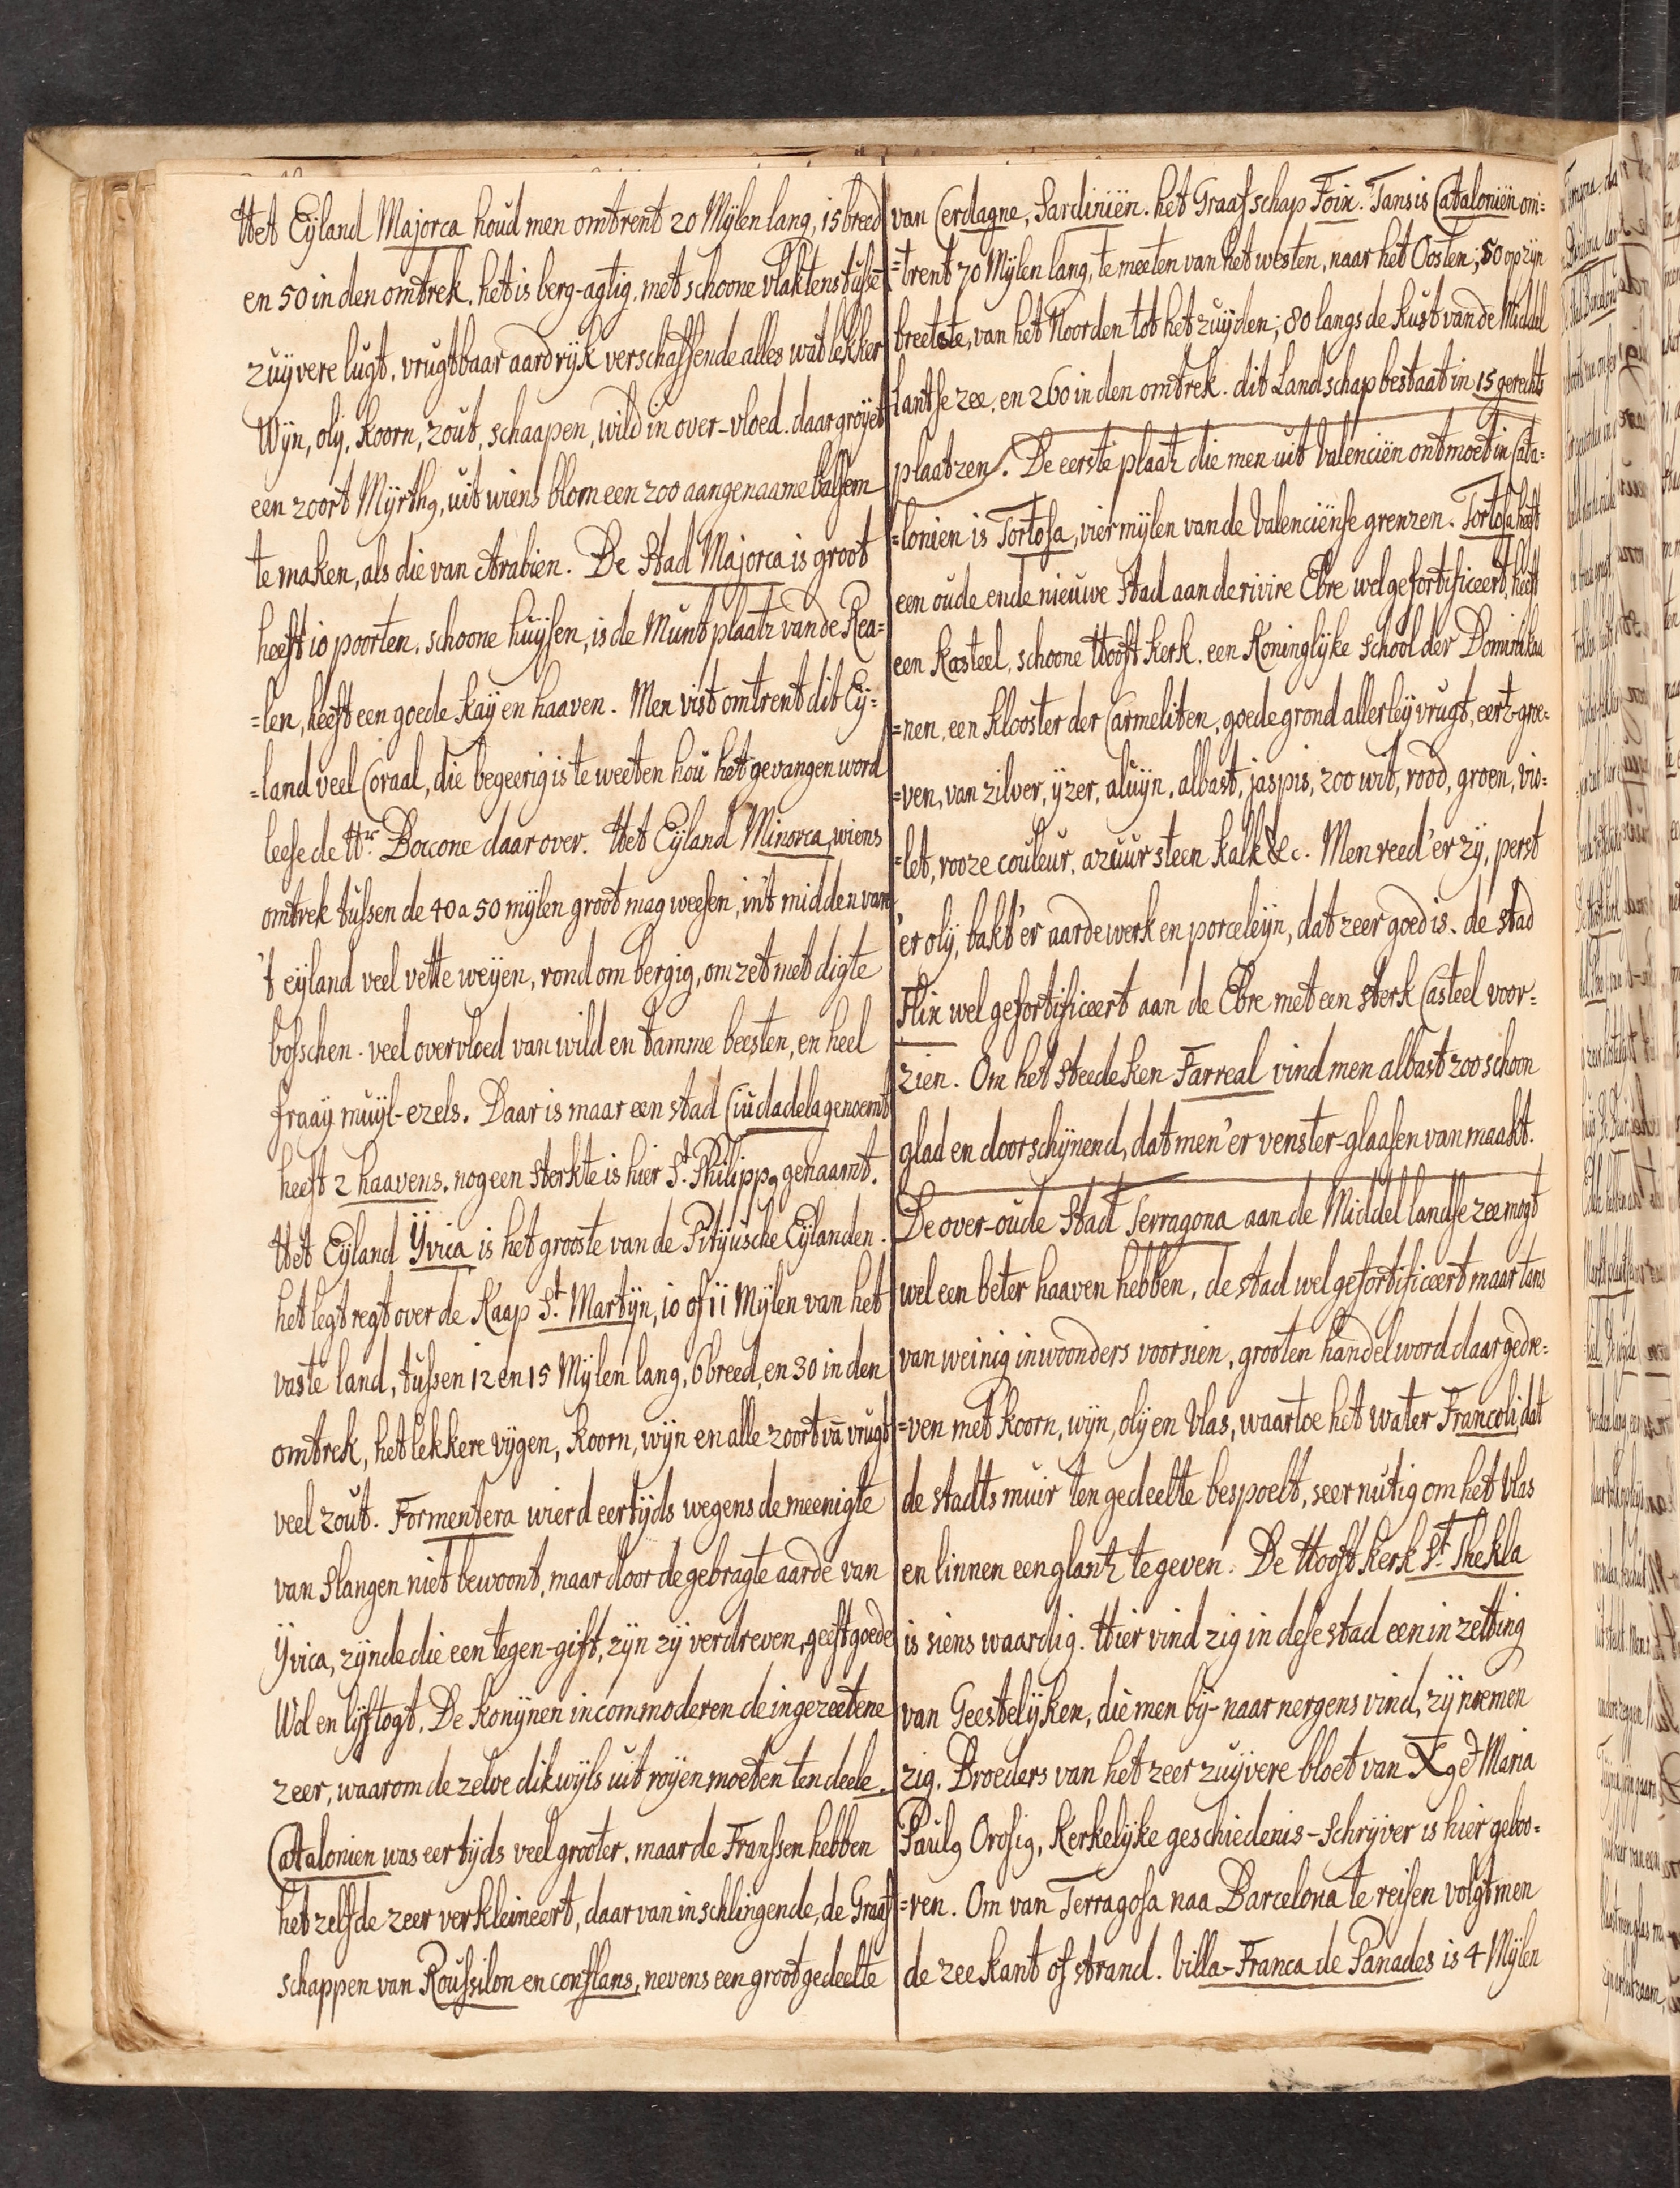 Het Eyland Majorca houd men omtrent 20 Mylen lang, 15 breed
en 50 in den omtrek. het is berg-agtig, met schoone vlaktens tusse
zuyvere lugt, vrugtbaar aardryk verschaffende alles wat lekker
Wyn, oly, koorn, zout, schaapen, wild in over-vloed. daar groyet
een zoort Myrthꝰ, uit wiens blom een zoo aangenaame balsem
te maken, als die van Arabien. De Stad Majorca is groot
heeft 10 poorten, schoone huysen, is de Munt plaatz van de Rea=
=len, heeft een goede kay en haaven. Men vist omtrent dit Ey=
=land veel Coraal, die begeerig is te weeten hoú het gevangen word
leese de Hr. Boccone daar over. Het Eyland Minorca, wiens
omtrek tússen de 40 a 50 mylen groot mag weesen, in't midden van
't eyland veel vette weyen, rond om bergig, omzet met digte
bosschen. veel overvloed van wild en tamme beesten, en heel
fraay muyl-ezels. Daar is maar een stad Ciúdadela genoemt
heeft 2 haavens. nog een sterkte is hier St. Philippꝰ genaamt.
Het Eyland Yvica is het grooste van de Pityúsche Eylanden.
het legt regt over de Kaap St. Martyn, 10 of 11 Mylen van het
vaste land, tússen 12 en 15 Mylen lang, 6 breed, en 30 in den
omtrek, het lekkere vygen, koorn, wyn en alle zoort vā vrugt
veel zoút. Formentera wierd eertyds wegens de meenigte
van slangen niet bewoont, maar door de gebragte aarde van
Yvica, zynde die een tegen-gift, zyn zy verdreven, geeft goede
Wol en lyftogt. De konynen incommoderen de ingezeetene
zeer, waarom de zelve dikwyls uit royen moeten ten deele.
Catalonien was eertyds veel grooter, maar de Franssen hebben
het zelfde zeer verkleineert, daar van inschlingende, de Graaf
schappen van Roússilon en conflans, nevens een groot gedeelte
van Cerdagne, Sardiniën. het Graafschap Foix. Tans is Cataloniën om=
=trent 70 Mylen lang, te meeten van het westen, naar het Oosten; 50 op zyn
breetste, van het Noorden tot het zuyden; 80 langs de Kust van de Middel
lantse zee, en 260 in den omtrek. dit Landschap bestaat in 15 gerechts
plaatzen. De eerste plaatz die men uit Valenciën ontmoet in Cata=
=lonien is Tortosa, vier mylen van de Valenciënse grenzen. Tortosa heeft
een oude ende nieuwe Stad aan de rivire Ebre wel gefortificeert, heeft
een Kasteel, schoone Hooft kerk. een Koninglyke School der Dominika
=nen, een Klooster der Carmeliten, goede grond allerley vrugt, eertz-groe=
=ven, van zilver, yzer, aluyn, albast, jaspis, zoo wit, rood, groen, vio=
=let, rooze couleur, azuúr steen kalk &c. Men reed'er zy, perst
'er oly, bakt'er aardewerk en porceleyn, dat zeer goed is. de stad
Flix wel gefortificeert aan de Ebre met een sterk Casteel voor=
zien. Om het steedeken Farreal vind men albast zoo schoon
glad en doorschynend, dat men'er venster-glaasen van maakt.
De over-oúde Stad Terragona aan de Middellandse zee mogt
wel een beter haaven hebben, de stad wel gefortificeert maar tans
van weinig inwoonders voorsien, grooten handel word daar gedre=
=ven met koorn, wyn, oly en Vlas, waartoe het water Francoli, dat
de stadts muir ten gedeelte bespoelt, seer nútig om het vlas
en linnen een glantz te geven. De Hooft kerk St. Thekla
is siens waardig. Hier vind zig in dese stad een inzetting
van Geestelyken, die men by-naar nergens vind, zy noemen
zig. Broeders van het zeer zuyvere bloet van Xꝰ & Maria
Paulꝰ Orosiꝰ, Kerkelyke geschiedenis-schryver is hier geboo=
=ren. Om van Terragosa naa Barcelona te reisen volgt men
de zee kant of strand. Villa-Franca de Panades is 4 Mylen